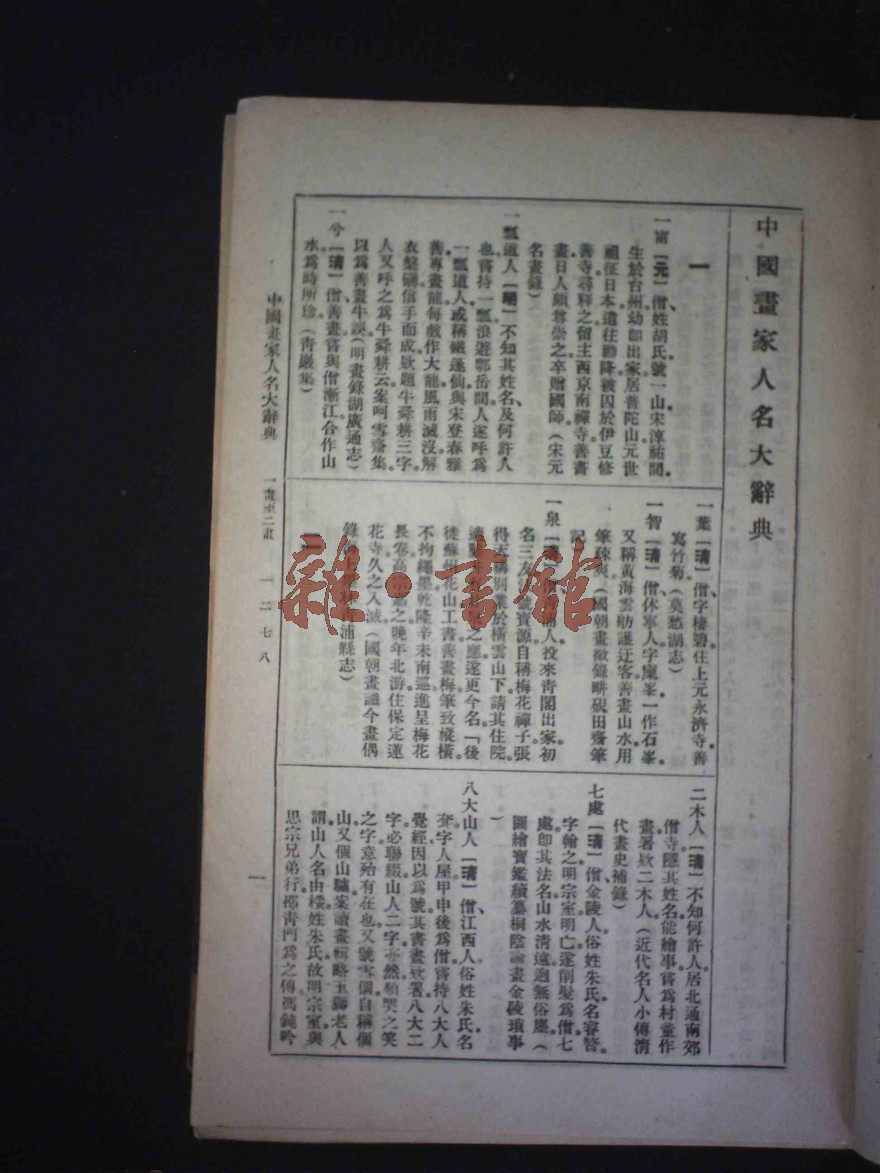 中國畫家人名大辭典
一
一甯【元】僧姓胡氏號一山宋淳祐間
生於台州幼卽出家居普陀山元世
祖征日本遣往勸降被囚於伊豆修
善寺尋釋之留主西京南禪寺善書
畫日人頗尊崇之卒贈國師（宋元
名畫錄）
一瓢道人【明】不知其姓名及何許人
也嘗持一瓢浪遊鄂岳間人遂呼爲
一瓢道人或稱鐵蓬仙與宋登春雅
善專畫龍每戲作大龍風雨滅沒解
衣盤礴信手而成欵題牛舜耕三字
人又呼之爲牛舜耕云案呵雪齋集
以爲善畫牛誤（明畫錄湖廣通志）
一兮【清】僧善畫嘗與僧漸江合作山
水爲時所珍（靑巖集）
一葉【清】僧字棲碧住上元永濟寺善
寫竹菊（莫愁湖志）
一智【清】僧休寧人字廩峯一作石峯
又稱黃海雲舫謙迂客善畫山水用
筆疎爽（國朝畫徵錄畊硯田齋筆
記）
一泉
人投來靑閣出家初
名三友
號寶源自稱梅花禪子張
得天
別業於橫雲山下請其住院
之應遂更今名「後
徒蘇州花山工書善畫梅筆致縱橫
不拘繩墨乾隆辛未南巡進呈梅花
長卷高宗嘉之晚年北游住保定蓮
花寺久之入滅（國朝畫識今畫偶
錄
浦縣志）
二木人【清】不知何許人居北通南郊
僧寺隱其姓名能繪事嘗爲村童作
畫署欵二木人（近代名人小傳淸
代畫史補錄）
七處【清】僧金陵人俗姓朱氏名睿
字翰之明宗室明亡遂削髮爲僧七
處卽其法名山水淸遠迥無俗塵（
圖繪寶鑑續纂桐陰論畫金陵瑣事
）
八大山人【清】僧江西人俗姓朱氏名
耷字人屋甲申後爲僧嘗持八大人
覺經因以爲號其書畫欵署八大二
字必聯綴山人二字亦然類哭之笑
之字意殆有在也又號雪個自稱個
山又個山驢案讀畫輯略玉獅老人
謂山人名由桵姓朱氏故明宗室與
思宗兄弟行邵靑門爲之傳馮鈍吟
中國畫家人名大辭典
一畫至二畫
一二七八
一
雜·書館